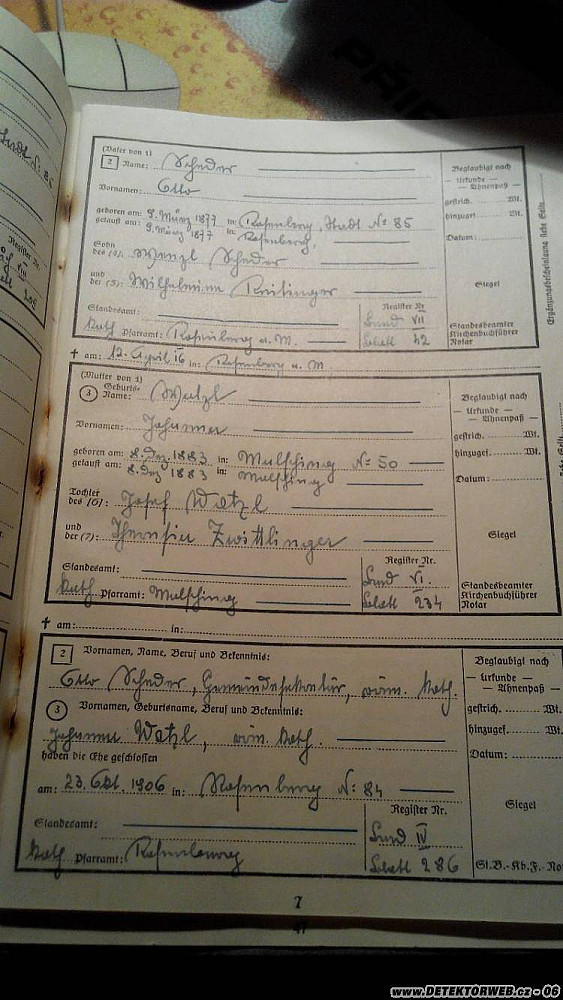 (Vater von 1)
2 Name: Scheder
Beglaubigt nach
Vornamen: Otto
— Urkunde —
— Ahnenpaß —
geboren am: 9. März 1877 in: Rosenberg, Stadt No 85
gestrich. Wt.
getauft am: 9. März 1877 in Rosenberg,
hinzugef. Wt.
Sohn
Datum:
des (4): Wenzl Scheder
und
der (5): Wilhelmine Reitinger
Siegel
Standesamt:
Register Nr.
Kath Pfarramt: Rosenberg a. M.
VII
Blatt 42
Standesbeamter
Kirchenbuchführer
Notar
† am: 12. April 16 in: Rosenberg a. M.
Ergänzungsbescheinigung siehe Seite
(Mutter von 1)
3 Geburts-
Name: Watzl
Beglaubigt nach
Vornamen: Johanna
— Urkunde —
— Ahnenpaß —
geboren am: 8. Dez. 1883 in: Malsching No 50
gestrich. Wt.
getauft am: 8. Dez 1883 in: Malsching
hinzugef. Wt.
Tochter
Datum:
des (6): Josef Watzl
und
der (7): Theresia Zwittlinger
Siegel
Standesamt:
Register Nr.
VI.
Kath. Pfarramt: Malsching
Blatt 234
Standesbeamter
Kirchenbuchführer
Notar
† am: in:
2 Vornamen, Name, Beruf und Bekenntnis:
Beglaubigt nach
Otto Scheder, Gemeindesekretär, röm. kath.
— Urkunde —
— Ahnenpaß —
3 Vornamen, Geburtsname, Beruf und Bekenntnis:
gestrich. Wt.
Johanna Watzl, röm. kath.
hinzugef. Wt.
haben die Ehe geschlossen
Datum:
am: 23. Okt. 1906 in: Rosenberg N: 84
Siegel
Standesamt:
Register Nr.
IV
Kath Pfarramt: Rosenberg
Blatt 286
St.B.-Kb.F.-No
7
www.DETEKTORWEB.cz - 06